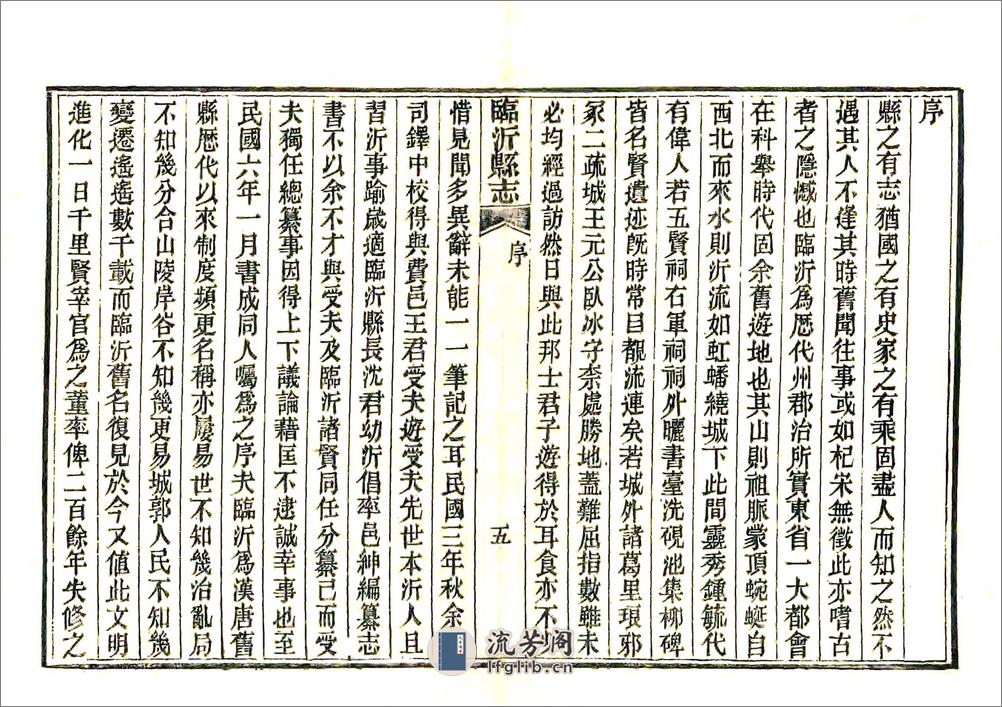 序
縣之有志猶國之有史家之有乘固盡人而知之然不
遇其人不逢其時舊聞往事或如杞宋無徵此亦嗜古
者之隱憾也臨沂爲歴代州郡治所實東省一大都會
在科舉時代固余舊遊地也其山則祖脈蒙頂蜿蜒自
西北而來水則沂流如虹蟠繞城下此間靈秀鍾毓代
有偉人若五賢祠右軍祠祠外曬書臺洗硯池集柳碑
皆名賢遺迹旣時常目覩流連矣若城外諸葛里琅邪
冢二疏城王元公臥冰守柰處勝地蓋難屈指數雖未
必均經過訪然日與此邦士君子遊得於耳食亦不
臨沂縣志
序
五
惜見聞多異辭未能一一筆記之耳民國三年秋余
司鐸中校得與費邑王君受夫遊受夫先世本沂人且
習沂事踰歲適臨沂縣長沈君幼沂倡率邑紳編纂志
書不以余不才與受夫及臨沂諸賢同任分纂已而受
夫獨任總纂事因得上下議論藉匡不逮誠幸事也至
民國六年一月書成同人囑爲之序夫臨沂爲漢唐舊
縣歴代以來制度頻更名稱亦屢易世不知幾治亂局
不知幾分合山陵岸谷不知幾更易城郭人民不知幾
變遷遙遙數千載而臨沂舊名復見於今又值此文明
進化一日千里賢宰官爲之董率俾二百餘年失修之
流芳閣
lfglib.cn